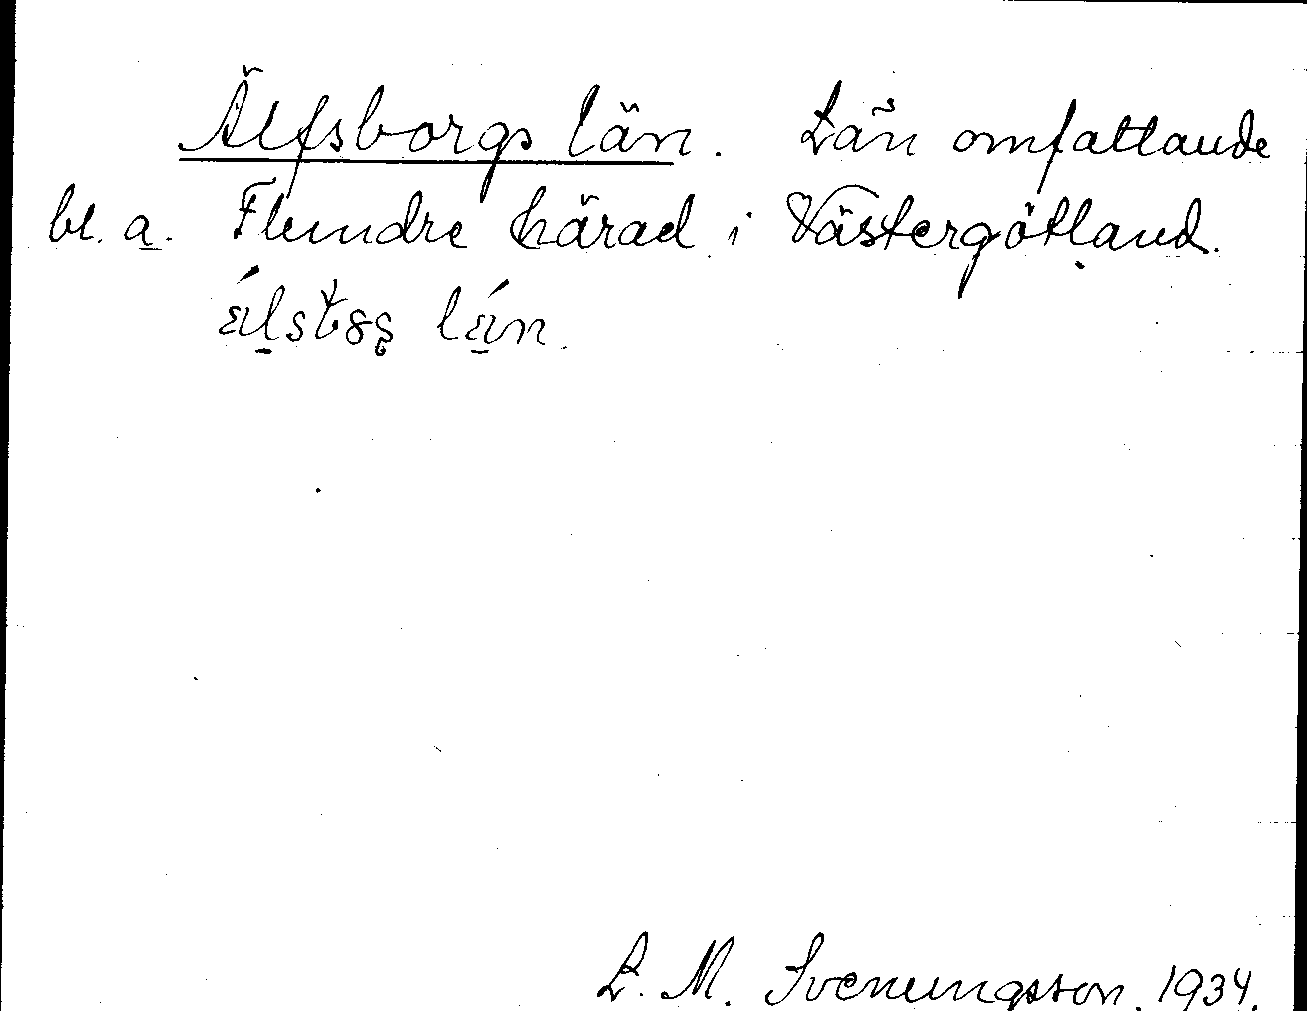 Älfsborgs län. Län omfattande
bl. a. Flundre härad i Västergötland.
län.
L. M. Svenungsson. 1934.